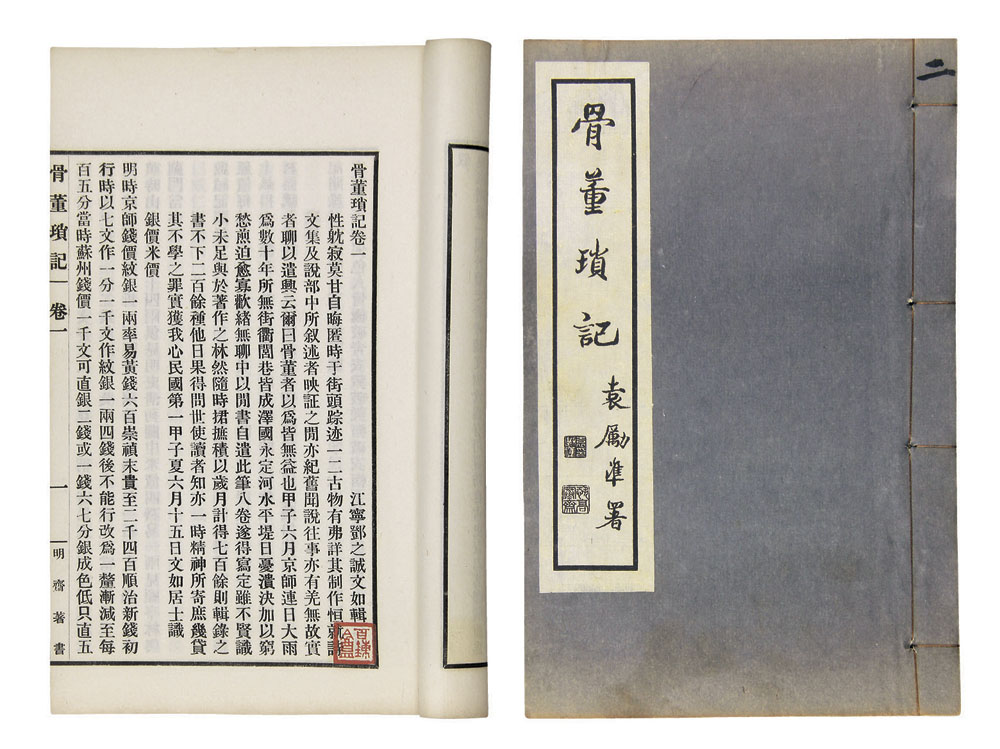 骨董瑣記卷一
江寧鄧之誠文如輯
性躭寂莫甘自晦匿時于街頭踪迹一二古物有弗詳其制作恒就
文集及說部中所叙述者映証之閒亦紀舊聞說往事亦有羌無故實
者聊以遣興云爾曰骨董者以爲皆無益也甲子六月京師連日大雨
爲數十年所無街衢閭巷皆成澤國永定河水平堤日憂潰決加以窮
愁煎迫愈寡歡緒無聊中以閒書自遣此筆八卷遂得寫定雖不賢識
小未足與於著作之林然隨時捃摭積以歲月計得七百餘則輯錄之
書不下二百餘種他日果得問世使讀者知亦一時精神所寄庶幾貸
其不學之罪實獲我心民國第一甲子夏六月十五日文如居士識
銀價米價
明時京師錢價紋銀一兩率易黃錢六百崇禎末貴至二千四百順治新錢初
行時以七文作一分一千文作紋銀一兩四錢後不能行改爲一釐漸減至每
百五分當時蘇州錢價一千文可直銀二錢或一錢六七分銀成色低只直五
骨董瑣記 卷一 一 明齋著書
二
骨董瑣記
袁勵準署